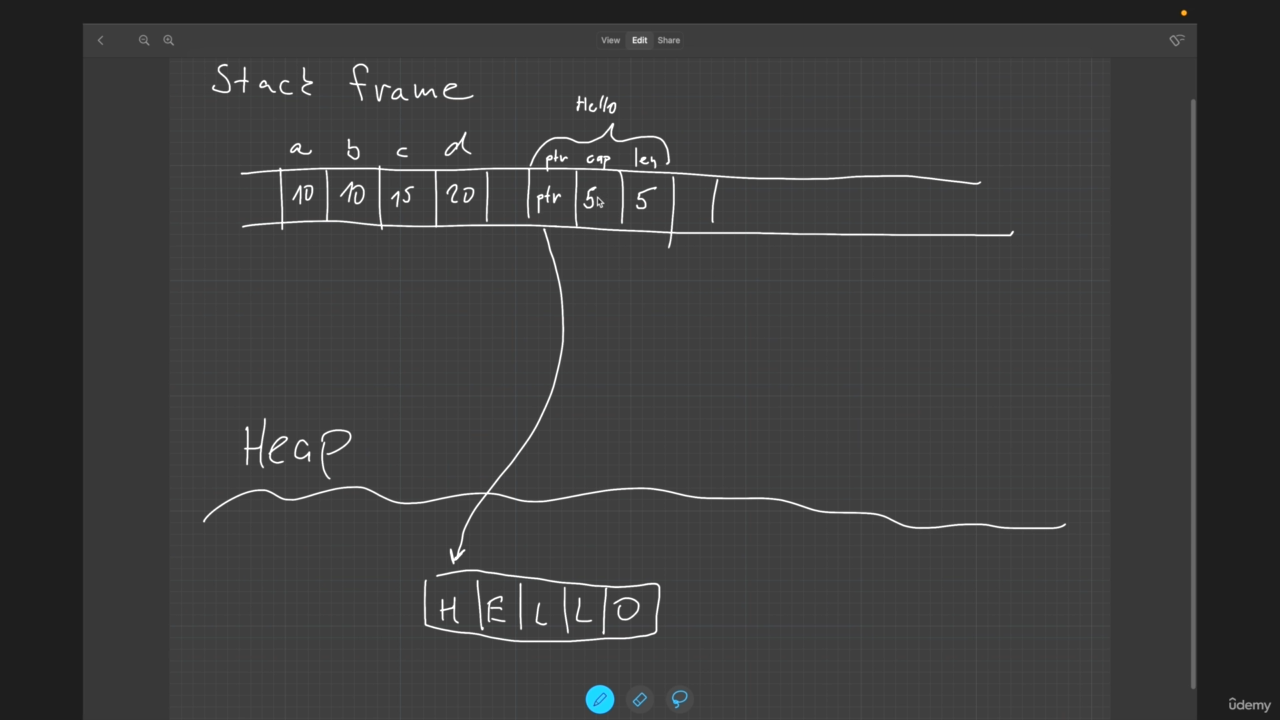 View Edit Share
Stack frame
Hello
a b c d ptr cap len
10 10 15 20 ptr 5 5
Heap
H E L L O
ûdemy